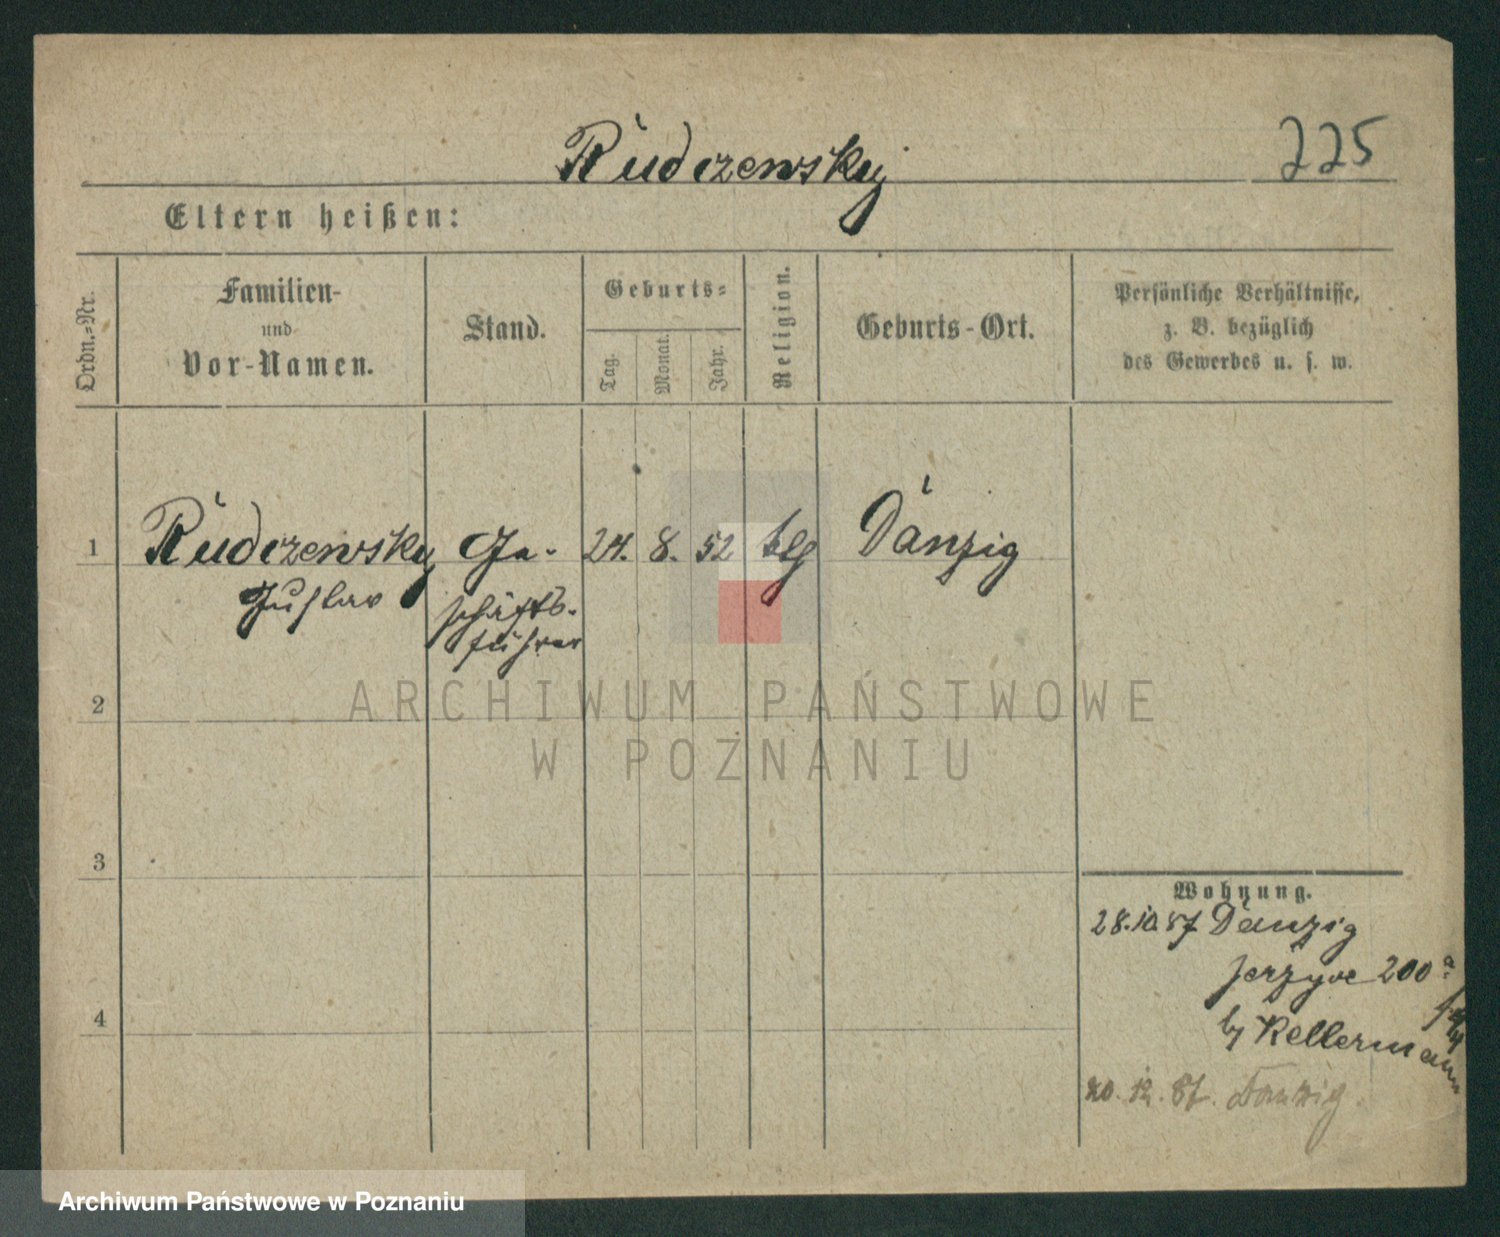 Rudczewsky
225
Eltern heißen:
Ordn.=Nr.
Familien-
und
Vor-Namen.
Stand.
Geburts=
Tag.
Monat.
Jahr.
Religion.
Geburts-Ort.
Persönliche Verhältnisse,
z. B. bezüglich
des Gewerbes u. s. w.
1 Rudczewsky Ge- 24. 8. 52 Danzig
Gustav schäfts-
führer
2
3
4
Wohnung.
28.10.87 Danzig
Jerzyce 200 a
Kellermann
20. 12. 87. Danzig.
ARCHIWUM PAŃSTWOWE
W POZNANIU
Archiwum Państwowe w Poznaniu